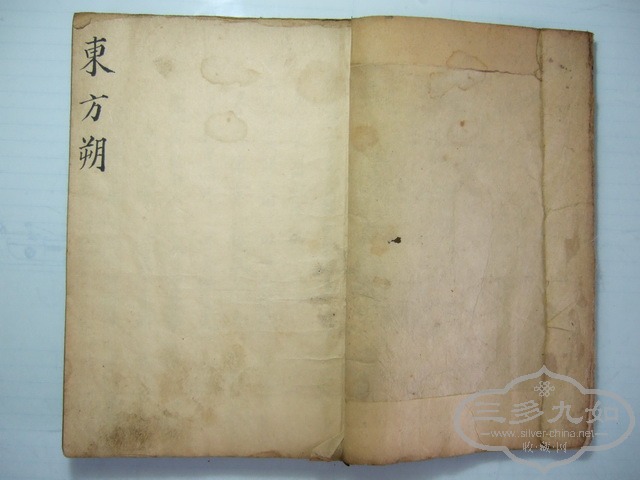 東方朔
三多九如
www.silver-china.net
收藏网